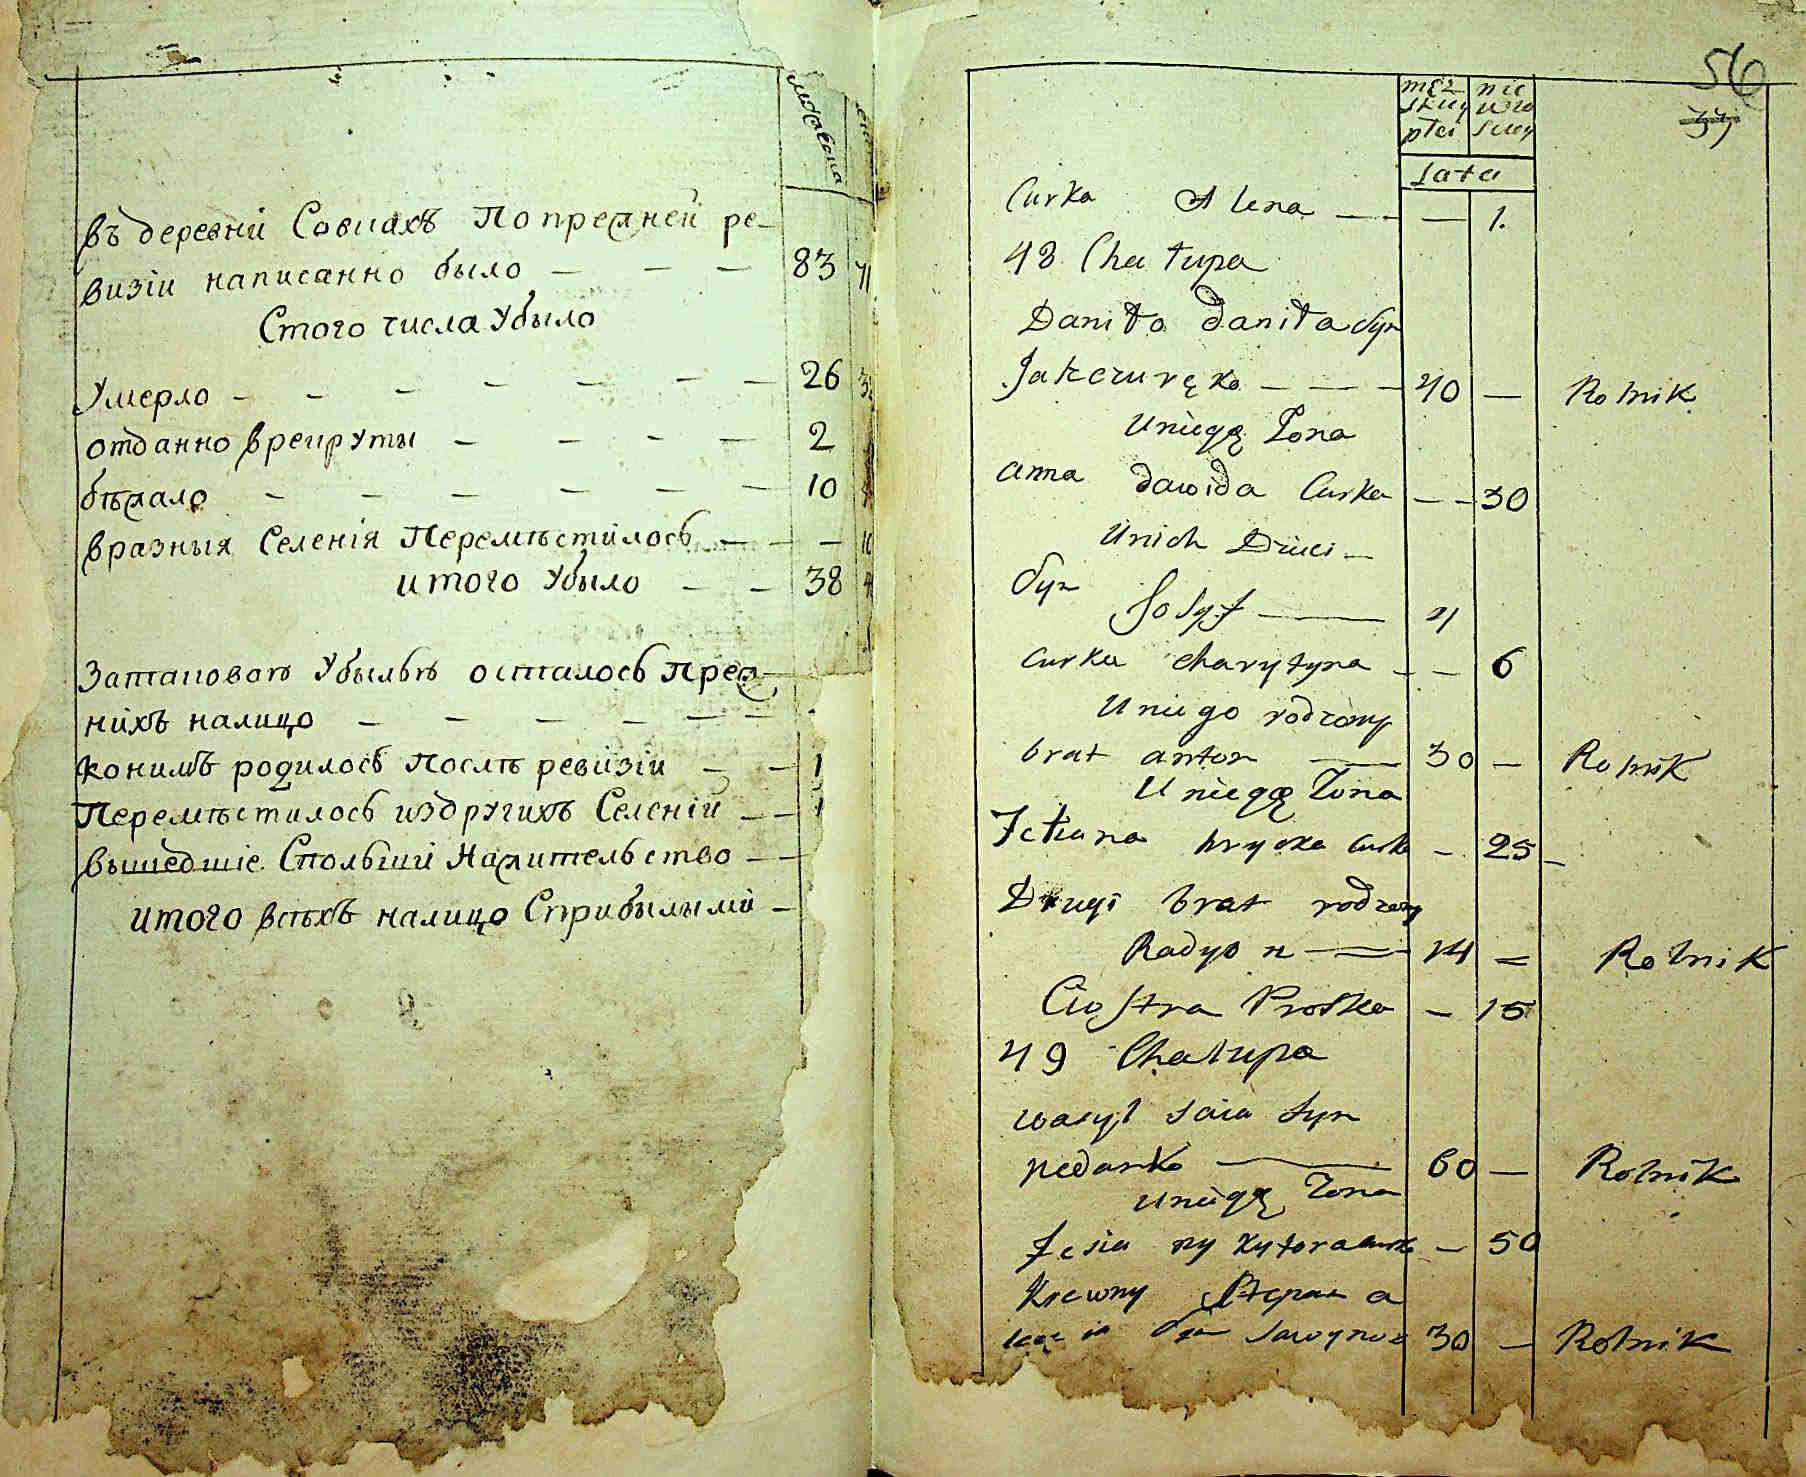 въ деревни Совпахъ По прежней ре-
визіи написанно было — — — 83 71
Стого числа Убыло
Умерло — — — — — — — 26
отданно врекруты — — — — 2
бѣжало — — — — — — 10
вразныя Селенія Перемѣстилось — — —
итого Убыло — — 38
Затаковою Убылью осталось Преж-
нихъ налицо — — — — — —
конимъ родилось Послѣ ревизіи — — 1
Перемѣстилось издругихъ Селеній — — 1
вышедшіе Спольши Нажительство — —
итого всѣхъ налицо Сприбылыми —
56
37
męz nie
skiey wie
płci sciey
Lata
Curka Alena — — — 1.
48 Chałupa
Daniło Daniła Syn
— — — 40 — Rolnik
Uniegę Żona
anna dawida Curka — — 30
Unich Dzieci —
Syn
Josyf — 4
Curka charytyna — — 6
Uniego rodzony
brat anton — 30 — Rolnik
Uniegę Żona
Tetiana hrycka Curka — 25 —
Drugi brat rodzony
Radyon — 14 = Rolnik
Ciostra Proska — 15
49 Chałupa
wasyl Syn
— 60 — Rolnik
Uniegę Żona
— 50
Krewny Stepan
Syn 30 — Rolnik